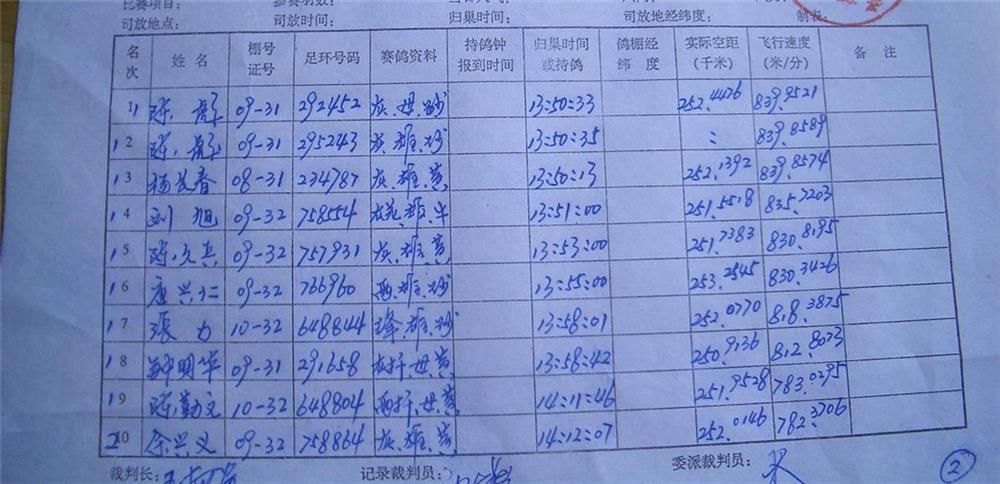 比赛项目:
司放地点: 司放时间: 归巢时间: 司放地经纬度: 制表:
名次 姓名 棚号证号 足环号码 赛鸽资料 持鸽钟报到时间 归巢时间或持鸽 鸽棚经纬度 实际空距(千米) 飞行速度(米/分) 备注
11 09-31 292452 灰.母.砂 13:50:33 252.4426 839.9521
12 09-31 295243 灰.雄.砂 13:50:35 : 839.8589
13 杨长春 08-31 234787 灰.雄.黄 13:50:13 252.1392 839.8574
14 刘旭 09-32 758554 13:51:00 251.5518 835.7203
15 陈文兵 09-32 757931 灰.雄.黄 13:53:00 251.7383 830.8195
16 唐兴仁 09-32 766960 雨.雄.砂 13:55:00 253.2545 830.3426
17 張力 10-32 648844 绛.雄.砂 13:58:01 252.0770 818.3875
18 钟明华 09-31 291658 13:58:42 250.9136 812.8073
19 陈勤文 10-32 648804 14:11:46 251.9528 783.0295
20 余兴义 09-32 758864 灰.雄.黄 14:12:07 252.0146 782.3706
裁判长: 记录裁判员: 委派裁判员:
2